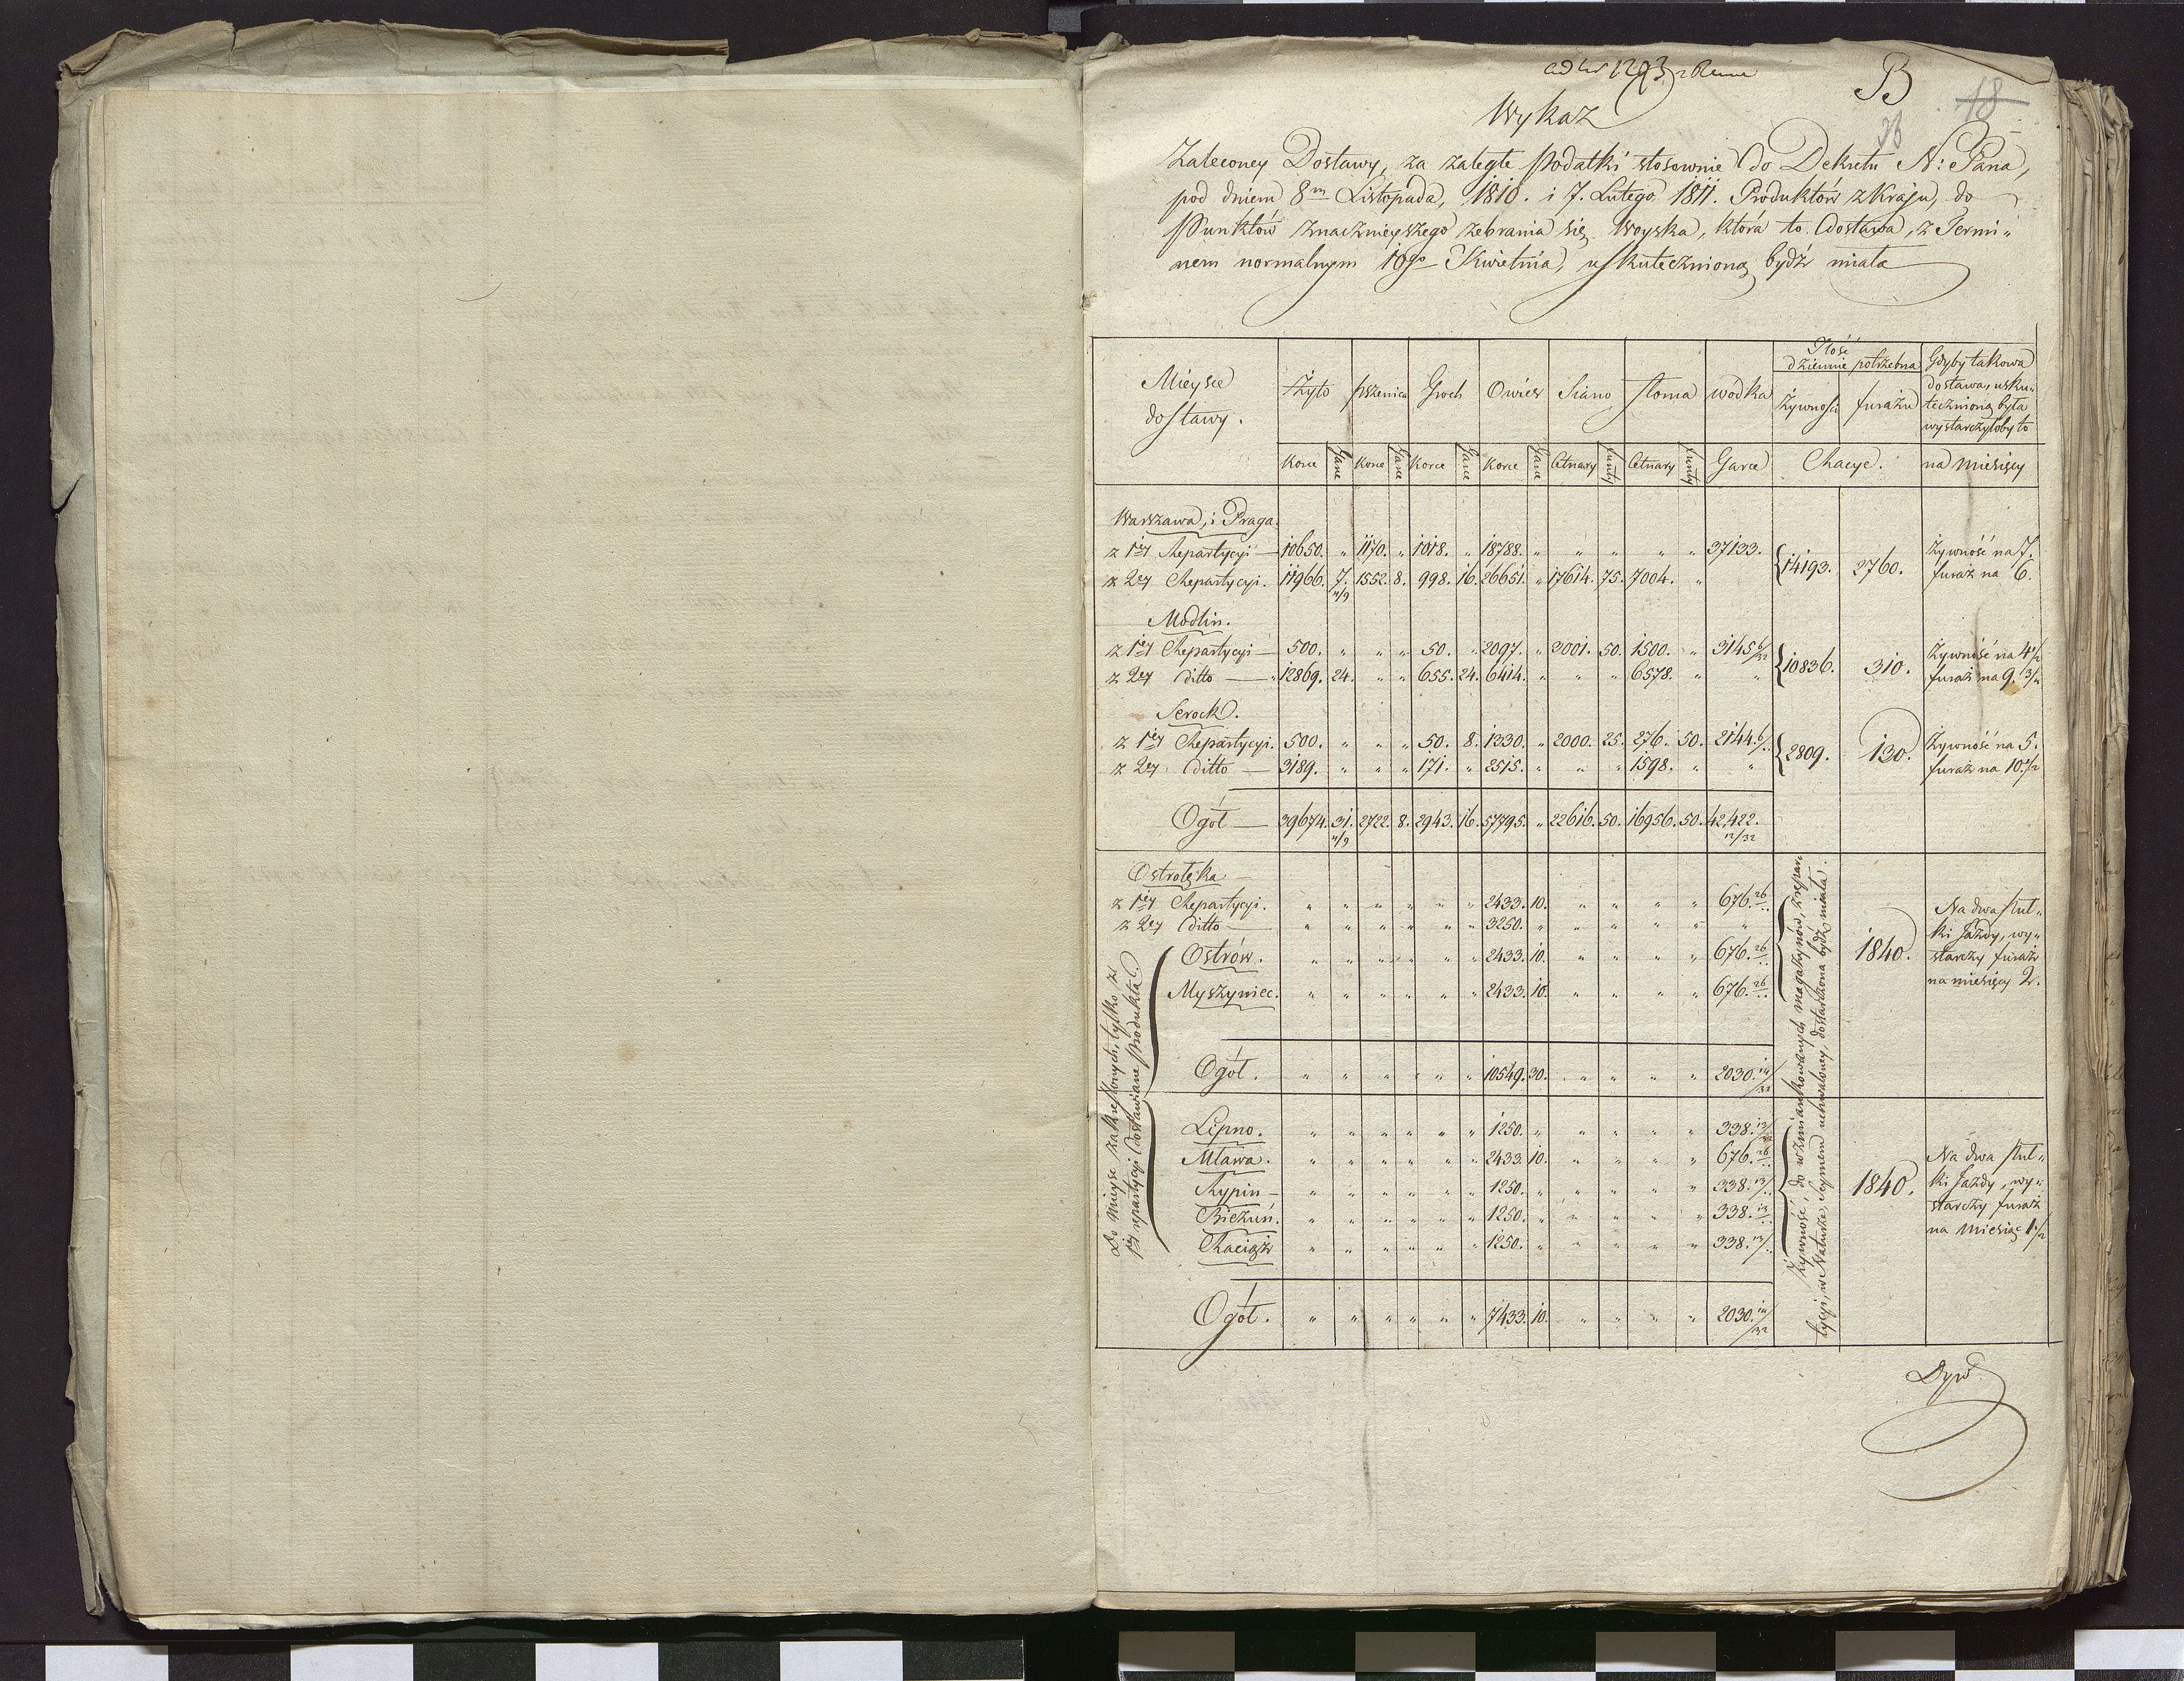 B
18
Wykaz
Zaleconey Dostawy, za zaległe Podatki stosownie do Dekretu N: Pana,
pod dniem 8m Listopada, 1810. i 7. Lutego 1811. Produktów z Kraju, do
Punktów znacznieyszego zebrania się Woyska, która to Dostawa, z Termi„
nem normalnym 10go Kwietnia, uskutecznioną bydź miała
Mieysce dostawy. Żyto pszenica Groch Owies Siano słoma wodka Ilość dziennie potrzebna Gdyby takowa
Żywności furażu dostawa, usku„
tecznioną była
wystarczyłoby to
Korce Garce Korce Garce Korce Garce Korce Garce Cetnary funty Cetnary funty Garce Racye. na Miesięcy
Warszawa, i Praga.
z 1ey Repartycyi — 10650. „ 1170. „ 1018. „ 18788. „ „ „ „ „ 37133. {14193. 2760. Żywność na 7.
z 2ey Repartycyi. 11966. 7. 4/9 1552. 8. 998. 16. 26651. „ 17614. 75. 7004. „ furaż na 6.
Modlin.
z 1ey Repartycyi — 500. „ „ „ 50. „ 2097. „ 3001. 50. 1500. „ 3145 6/32 {10836. 310. Żywność na 4 1/2
z 2ey ditto — 12869. 24. „ „ 655. 24. 6414. „ „ „ 6578. „ „ furaż na 9. 3/4
Serock.
z 1ey Repartycyi. 500. „ „ „ 50. 8. 1330. „ 2000. 25. 276. 50. 2144. 6/.. {2809. 130. Żywność na 5.
z 2ey ditto — 3189. „ „ „ 171. „ 2515. „ „ „ 1598. „ „ furaż na 10. 1/2
Ogół — 39674. 31. 4/9 2722. 8. 2943. 16. 57795. „ 22616. 50. 16956. 50. 42,422. 12/32
Ostrołęka —
z 1ey Repartycyi. „ „ „ „ „ „ 2433. 10. „ „ „ „ 676. 26/.. 1840. Na dwa Puł„
z 2ey ditto — „ „ „ „ „ „ 3250. „ „ „ „ „ „ ki Jazdy, wy„
Ostrów. „ „ „ „ „ „ 2433. 10. „ „ „ „ 676. 26/.. starczy furaż
Myszyniec. „ „ „ „ „ „ 2433. 10. „ „ „ „ 676. 26/.. na miesięcy 2.
Ogół. „ „ „ „ „ „ 10549. 30. „ „ „ „ 2030. 14/32
Lipno. „ „ „ „ „ „ 1250. „ „ „ „ „ 338. 13/32
Mława. „ „ „ „ „ „ 2433. 10. „ „ „ „ 676. 26/.. Na dwa Puł„
Rypin — „ „ „ „ „ „ 1250. „ „ „ „ „ 338. 13/.. 1840. ki Jazdy, wy„
Bieżuń. „ „ „ „ „ „ 1250. „ „ „ „ „ 338. 13/.. starczy furaż
Raciąż „ „ „ „ „ „ 1250. „ „ „ „ „ 338. 13/.. na Miesiąc 1. 1/2
Ogół. „ „ „ „ „ „ 7433. 10. „ „ „ „ 2030. 14/32
Do mieysc zakreślonych, tylko z
1ey repartycyi dostawiane Produkta.
Żywność, do wzmiankowanych magazynów, z repar„
tycyi, w Naturze, Seymem uchwaloney, dostarczona bydź miała.